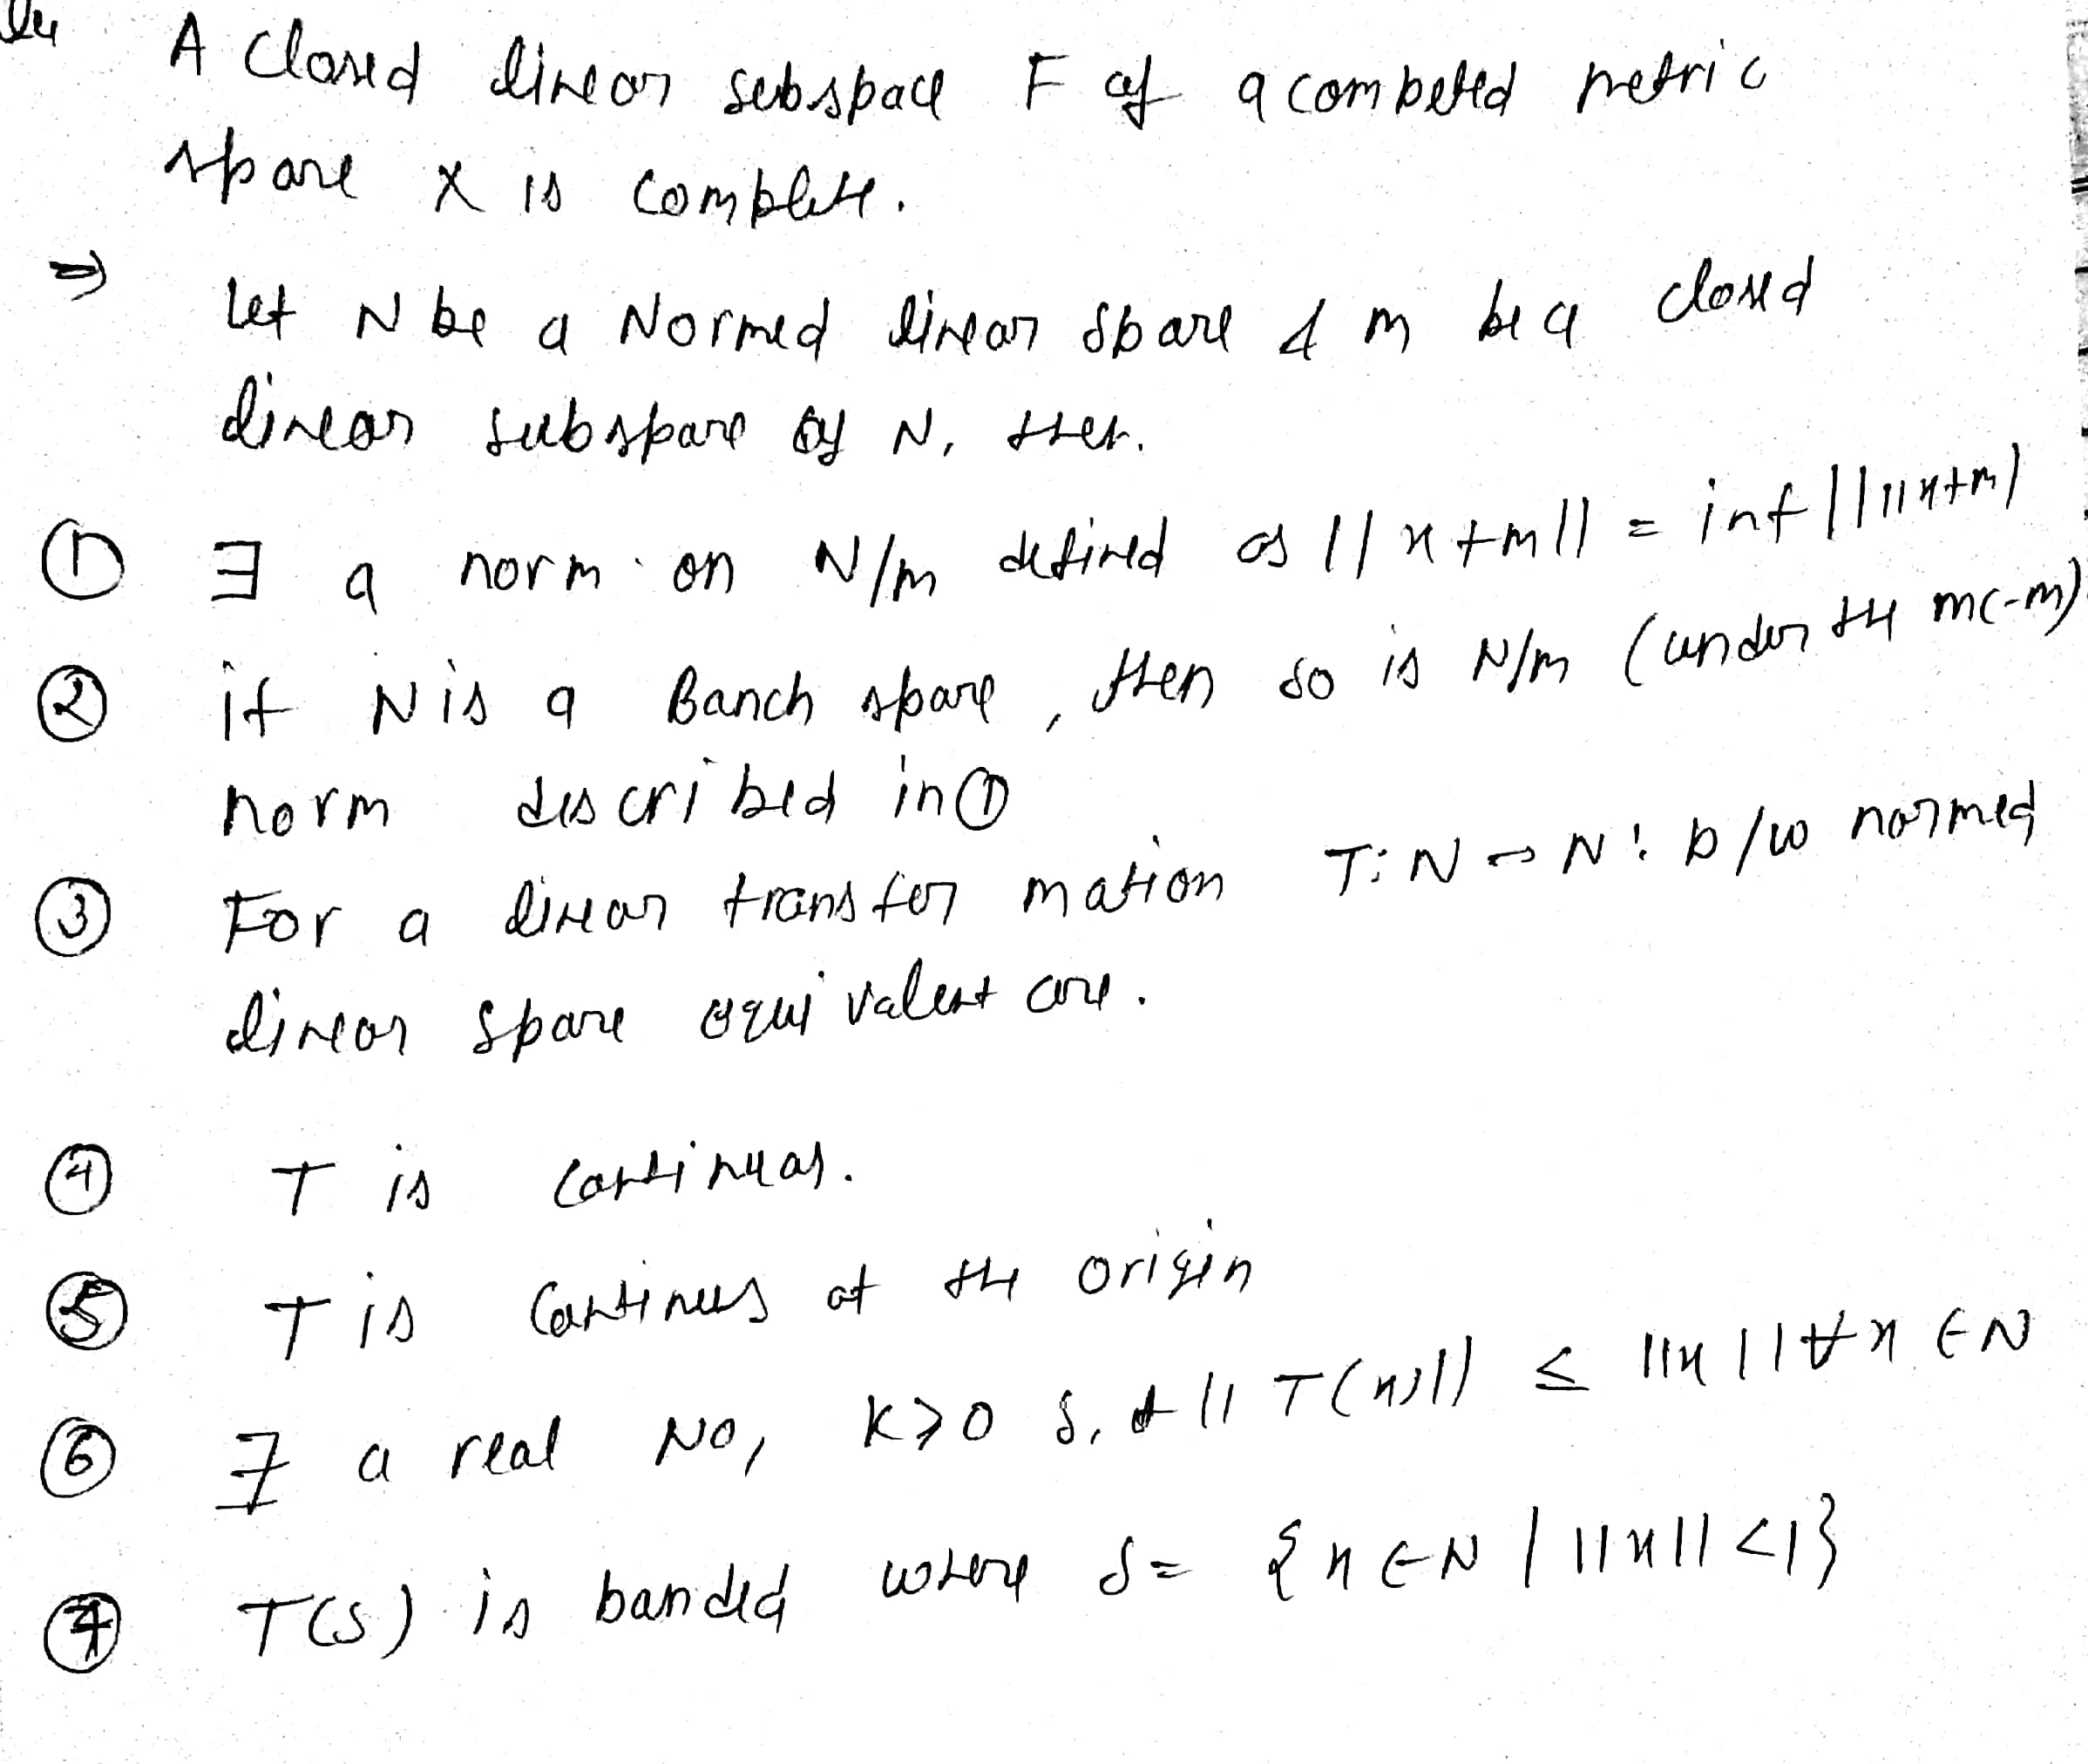 A Closed linear subspace F of a combeted metric
space X is complete.
⇒ Let N be a Normed linear space & m be a closed
linear subspace of N, then.
① ∃ a norm on N/m defined as ||x+m|| = inf ||||x+m|
② if N is a Banch space, then so is N/m (under the m(-m)
norm described in ①
③ For a linear transformation T: N → N' b/w normed
linear space equivalent are.
④ T is continuas.
⑤ T is Continus at the origin
⑥ ∃ a real No, K>0 s.t || T(x)|| ≤ ||x|| ∀ x ∈ N
⑦ T(s) is banded where S = {x ∈ N | ||x|| <1}